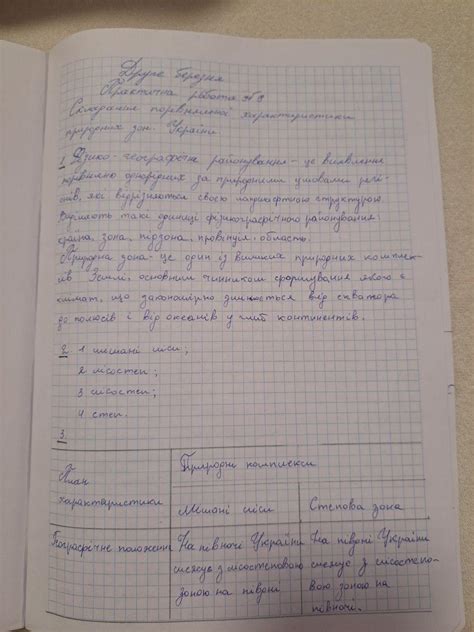 Друге березня
Практична робота №9
Складання порівняльної характеристики
природних зон України
1. Фізико-географічне районування - це виявлення
порівняно однорідних за природними умовами регі-
онів, які відрізняються своєю ландшафтною структурою.
Виділяють такі одиниці фізикографічного районування:
країна, зона, підзона, провінція, область.
Природна зона - це один із великих природних комплек-
сів Землі, основним чинником формування якого є
клімат, що закономірно змінюється від екватора
до полюсів і від океанів у глиб континентів.
2. 1 мішані ліси;
2 лісостеп;
3 лісостеп;
4 степ.
3.
План
характеристики
Природні комплекси
Мішані ліси
Степова зона
Географічне положення
На півночі України
межує з лісостеповою
зоною на півдні
На півдні України
межує з лісостепо-
вою зоною на
півночі.